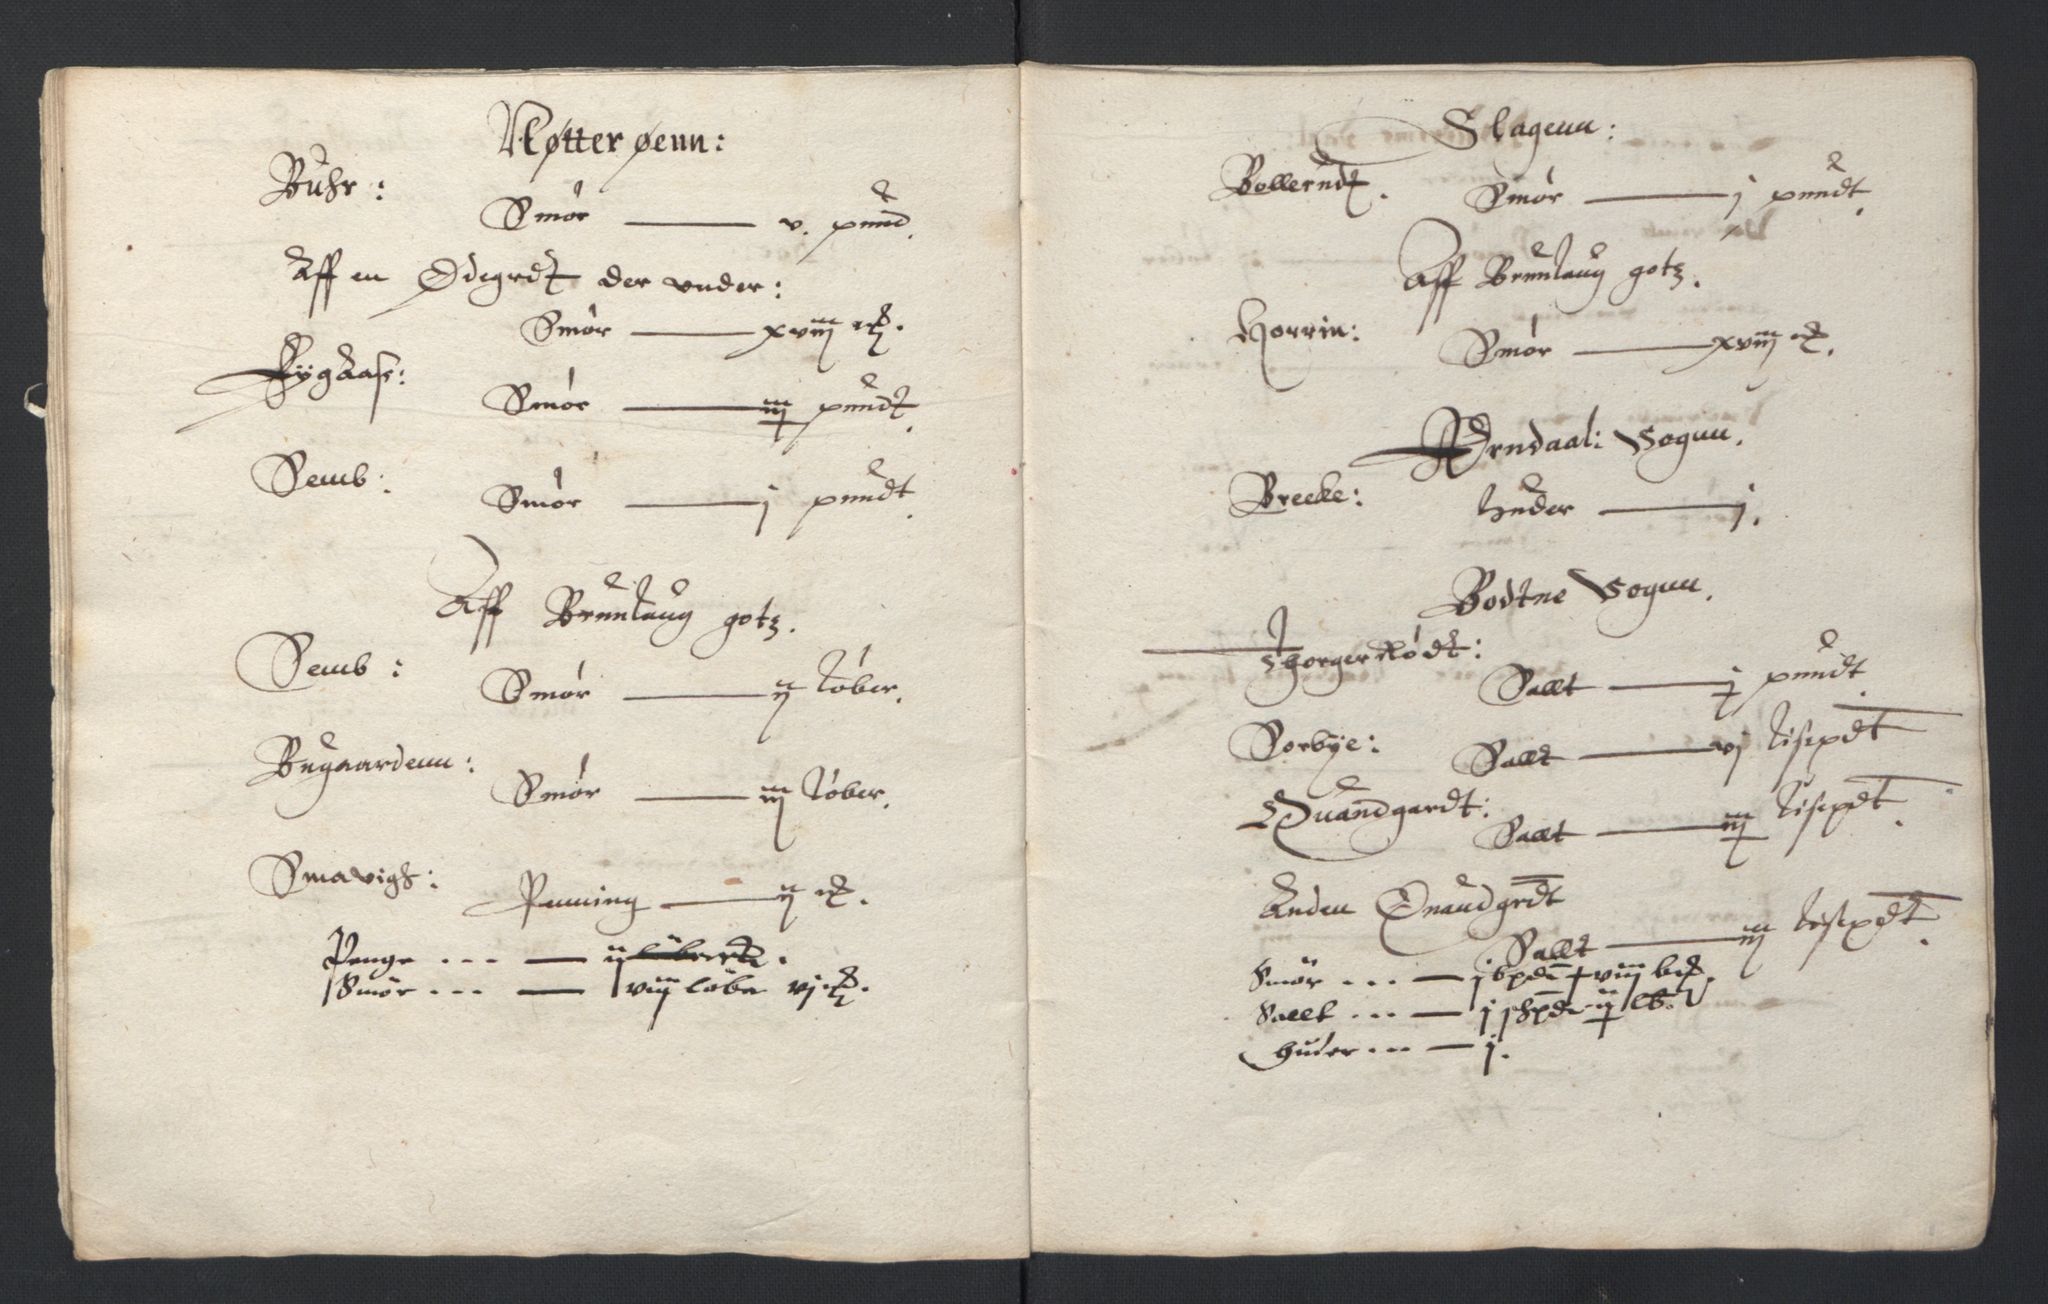 Nøtterøenn:
Buhr:
Smör —— v. pund.
Aff en Ødegrdt der vnder:
Smör —— xviij mk.
Rygaas:
Smör —— iij pundt.
Semb:
Smör —— j pundt.
Aff Brunlaug gotz.
Semb:
Smör —— ij løber.
Bugaardenn:
Smör —— iij løber.
Smavigh:
Penning —— ij mk.
Penge ... — ij
Smör ... — viij løber vj mk.
Slagenn:
Bollerudt.
Smör —— j pundt.
Aff Brunlaug gotz.
Horrin:
Smör —— xviij mk.
Arndaal: Sogun.
Brecke:
huder —— j.
Bodtne Sogun.
Thorgerrødt:
Sallt —— j pundt
Sorbye:
Sallt —— vj lisepdt
Quandgardt:
Sallt —— iij lisepdt.
Anden Quandgrdt
Sallt —— iij lisepdt.
Smör ... — j bpd
Sallt ... — j shpd ij lb.
huder ... — j.